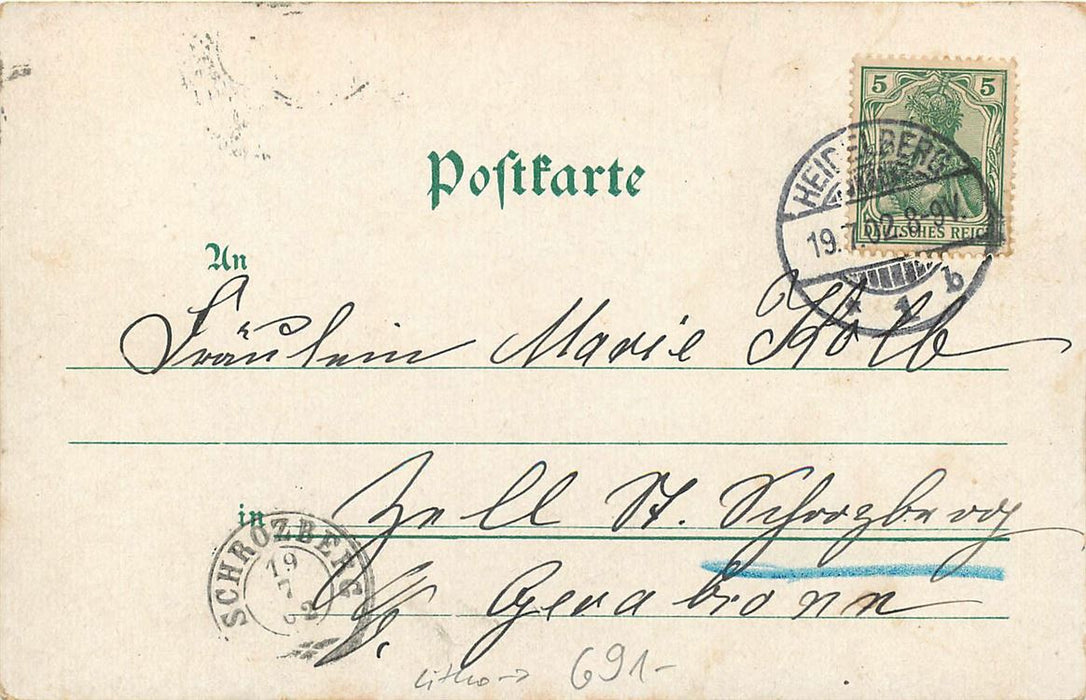 5 5
DEUTSCHES REICH
HEIDELBERG
19.7.02 8-9V.
* 1 b
Poſtkarte
An
Fräulein Marie Kolb
in
Zell St. Schrozberg
Gerabronn
SCHROZBERG
19
7
02
Litho 691-